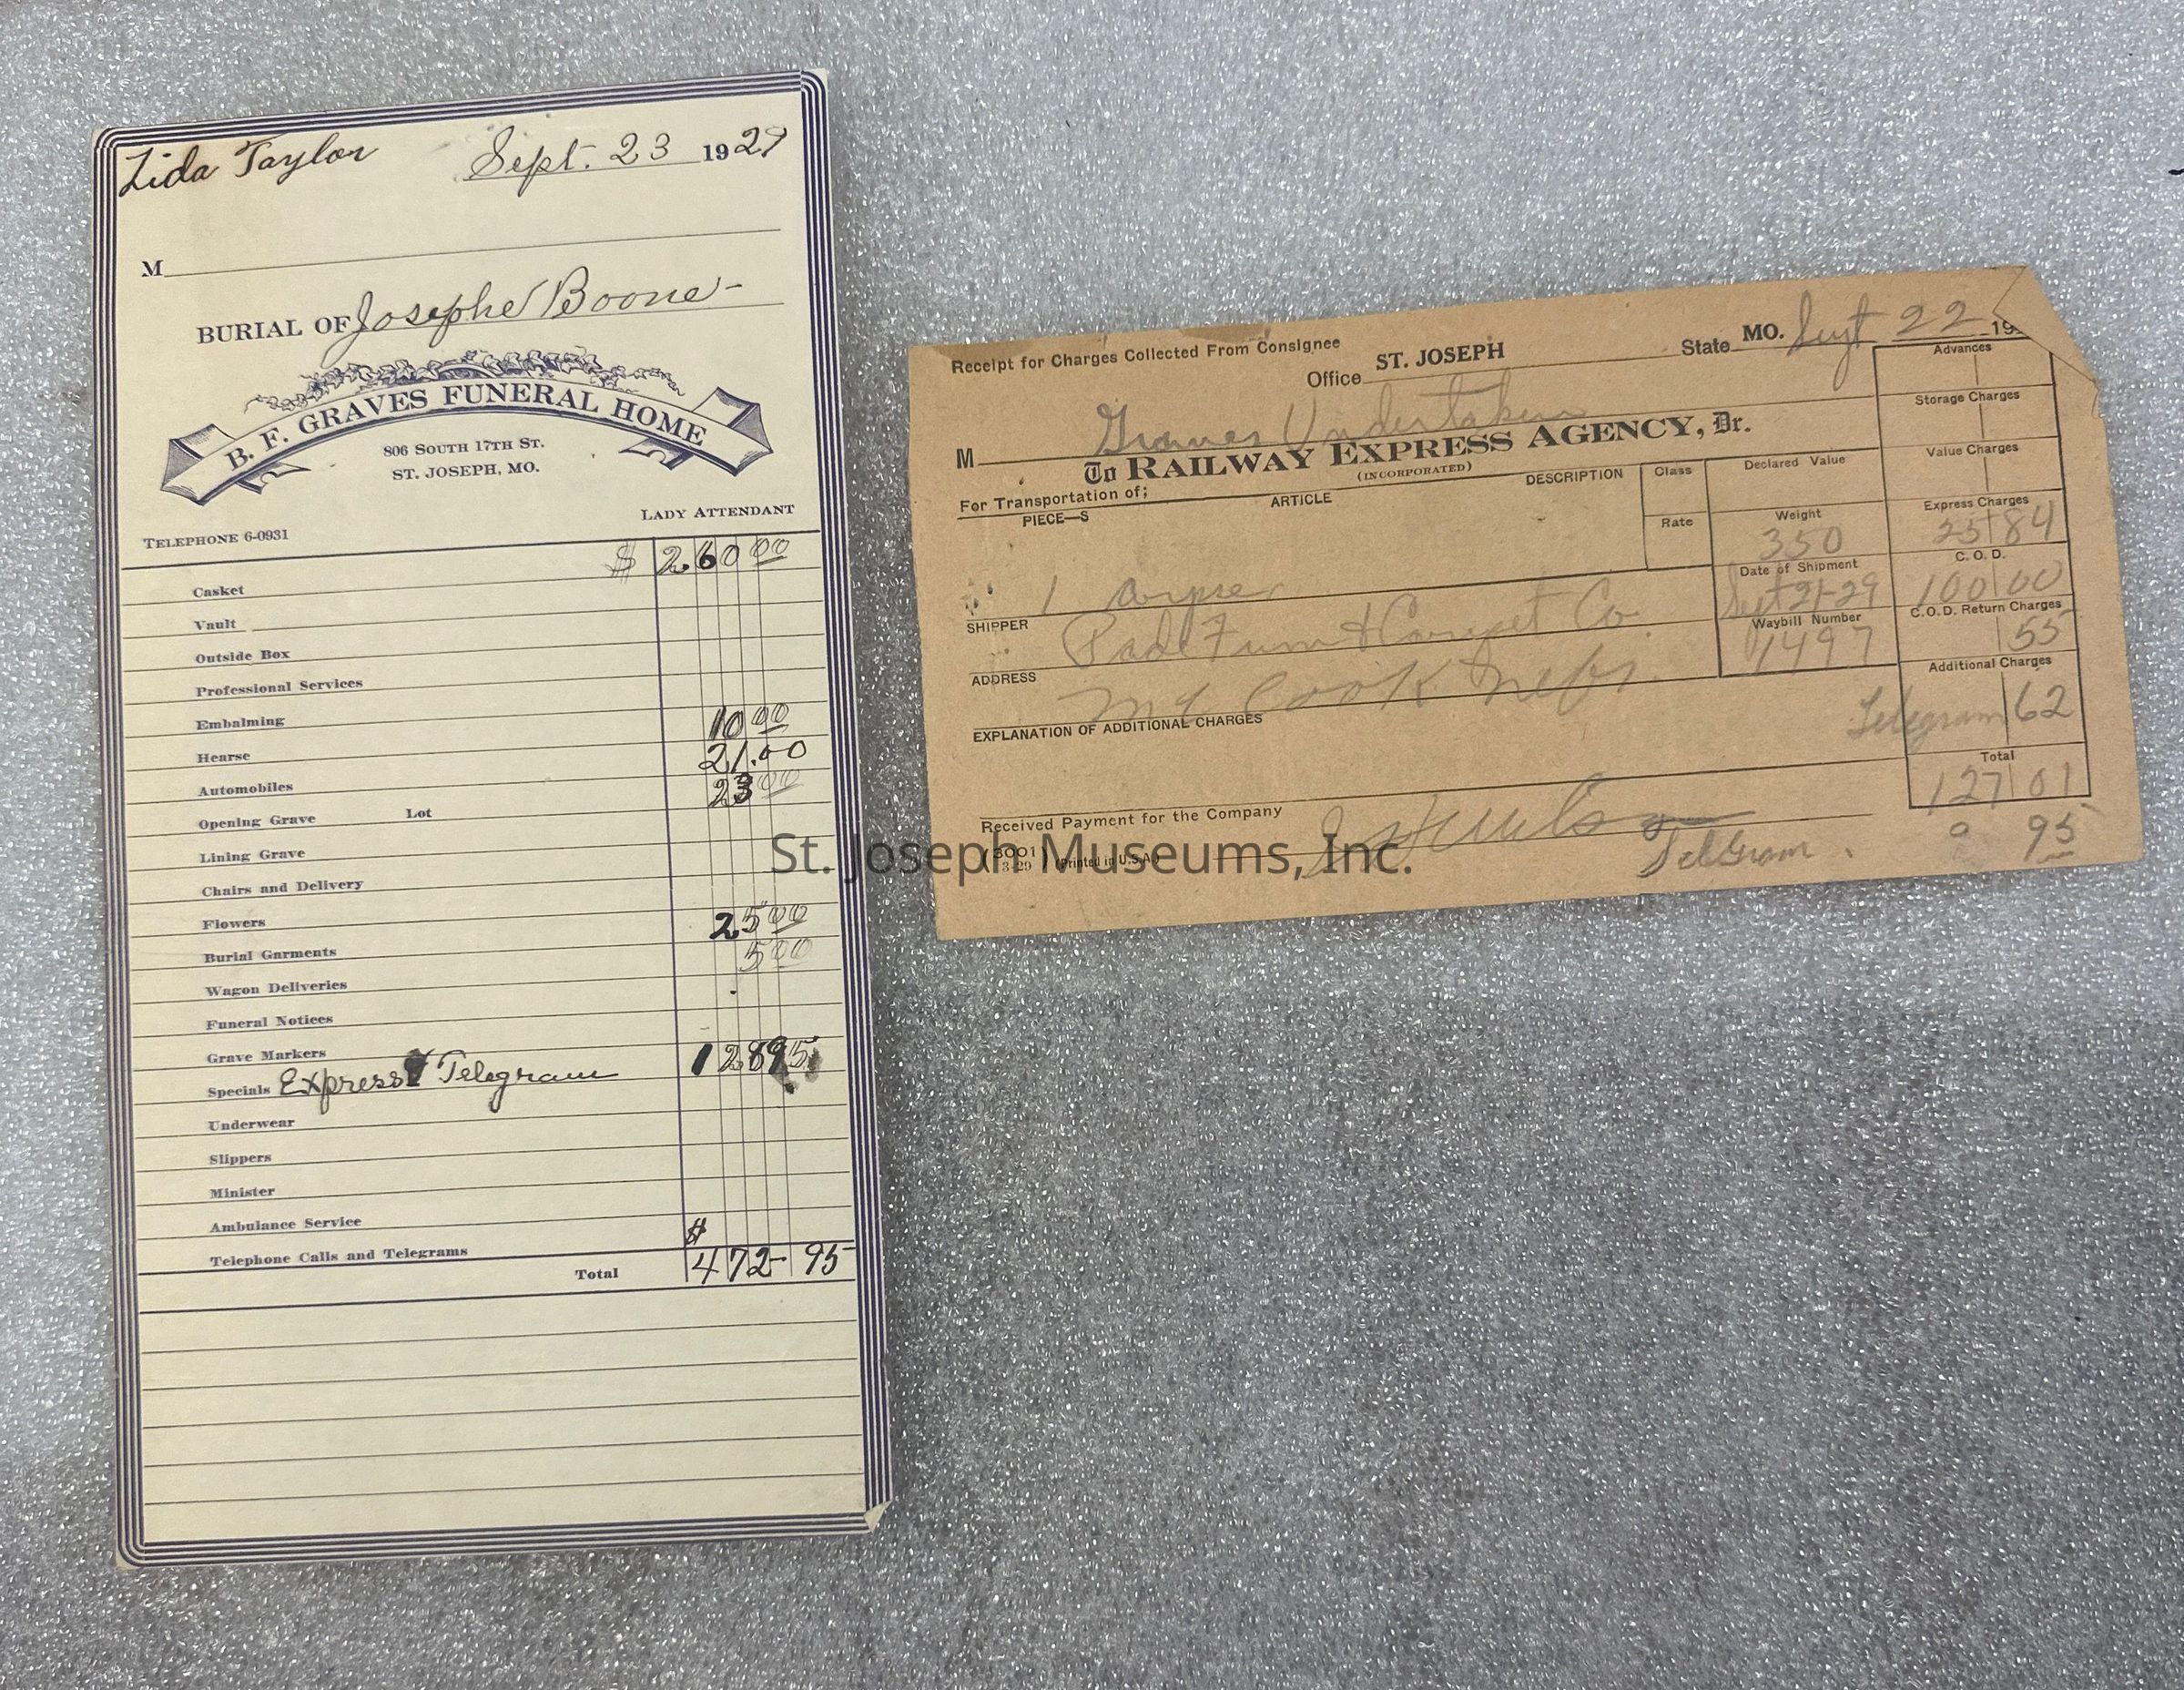 Lida Taylor Sept. 23 1929
M
BURIAL OF Josephe Boone-
B. F. GRAVES FUNERAL HOME
806 SOUTH 17TH ST.
ST. JOSEPH, MO.
LADY ATTENDANT
TELEPHONE 6-0931
Casket $ 260 00
Vault
Outside Box
Professional Services
Embalming 10 00
Hearse 21.00
Automobiles 23 00
Opening Grave Lot
Lining Grave
Chairs and Delivery
Flowers 25 00
Burial Garments 5 00
Wagon Deliveries
Funeral Notices
Grave Markers
Specials Express & Telegram 128 95
Underwear
Slippers
Minister
Ambulance Service
Telephone Calls and Telegrams $
Total 472- 95
Receipt for Charges Collected From Consignee
Office ST. JOSEPH State MO. Sept 22 19
M Graves Undertaker
To RAILWAY EXPRESS AGENCY, Dr.
(INCORPORATED)
For Transportation of;
PIECE—S ARTICLE DESCRIPTION
Class
Rate
1 Corpse
SHIPPER Furn & Co.
ADDRESS Mc Cook Nebr.
EXPLANATION OF ADDITIONAL CHARGES
Declared Value
Weight
350
Date of Shipment
Sept 21-29
Waybill Number
1497
Advances
Storage Charges
Value Charges
Express Charges
25 84
C. O. D.
100 00
C.O.D. Return Charges
55
Additional Charges
Telegram 62
Total
127 01
Received Payment for the Company
(3001)
3-29 (Printed in U.S.A.)
Telegram. 95
St. Joseph Museums, Inc.